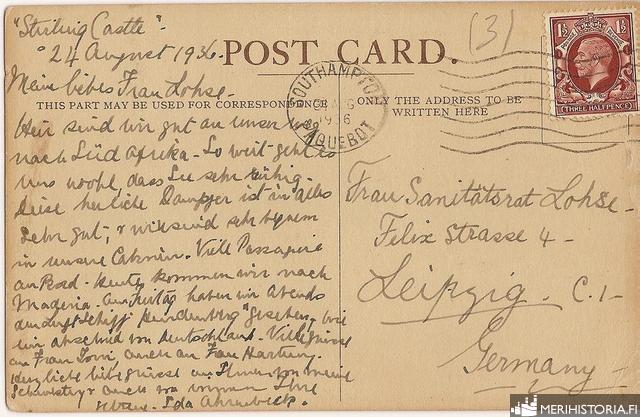 "Stirling Castle".
24 August 1936.
(3)
POST CARD.
1½ 1½
THREE HALFPENCE
SOUTHAMPTON
1936
PAQUEBOT
THIS PART MAY BE USED FOR CORRESPONDENCE
ONLY THE ADDRESS TO BE
WRITTEN HERE
Mein liebes Frau Lohse.
Hier sind wir gut an unser
nach Süd Afrika. So weit geht es
uns wohl, das See sehr ruhig.
Diese herliche Dampfer ist in alles
sehr gut, & wir sind sehr bequem
in unsere Cabinen. Viele Passagiere
an Bord. heute kommen wir nach
Madeira. am Freitag haben wir Abends
den Luftschiff Hindenburg gesehen, wie
ein abschied von Deutschland. Viele grüsse
an Frau Toni, auch an Frau Hartung.
Herzliche liebe grüsse an Ihnen von meine
Schwester & auch von
Ida
Frau Sanitätsrat Lohse
Felix Strasse 4
Leipzig. C.1
Germany
MERIHISTORIA.FI